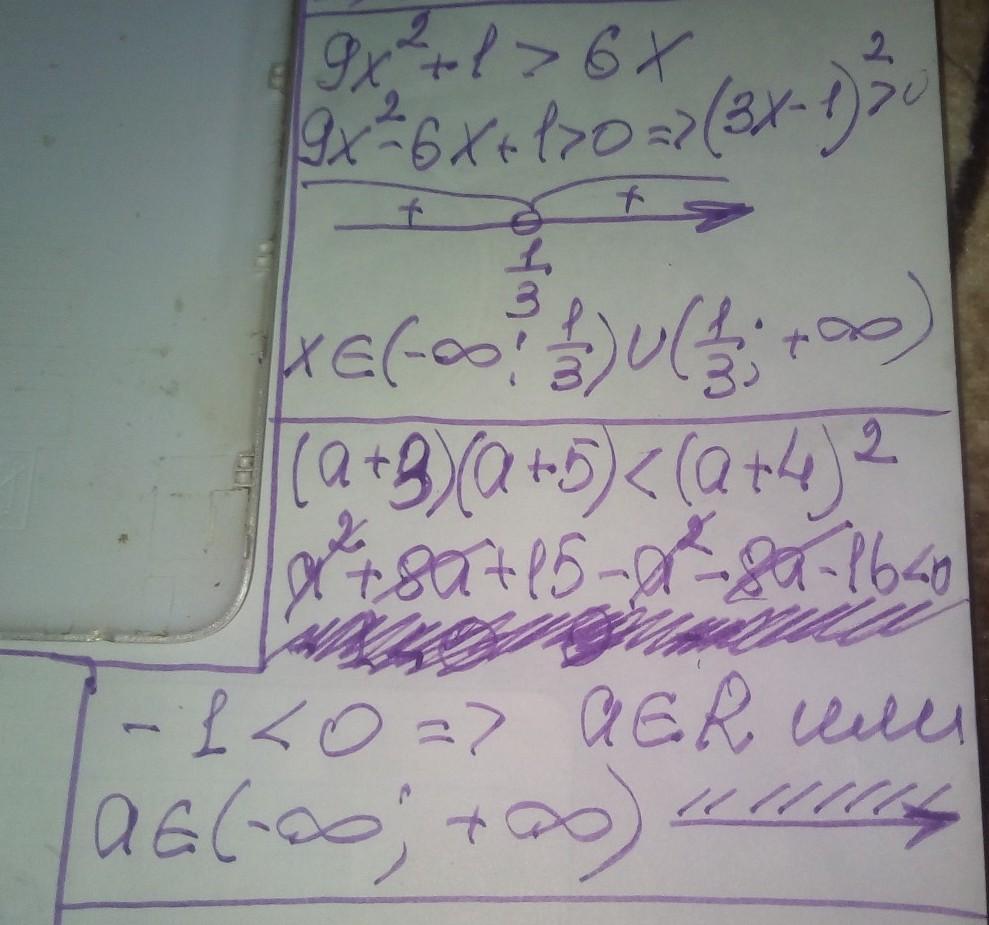 9x²+1 > 6x
9x²-6x+1>0 => (3x-1)²>0
+ +
1/3
x∈(-∞; 1/3)∪(1/3; +∞)
(a+3)(a+5)<(a+4)²
a²+8a+15-a²-8a-16<0
-1<0 => a∈R или
a∈(-∞; +∞)